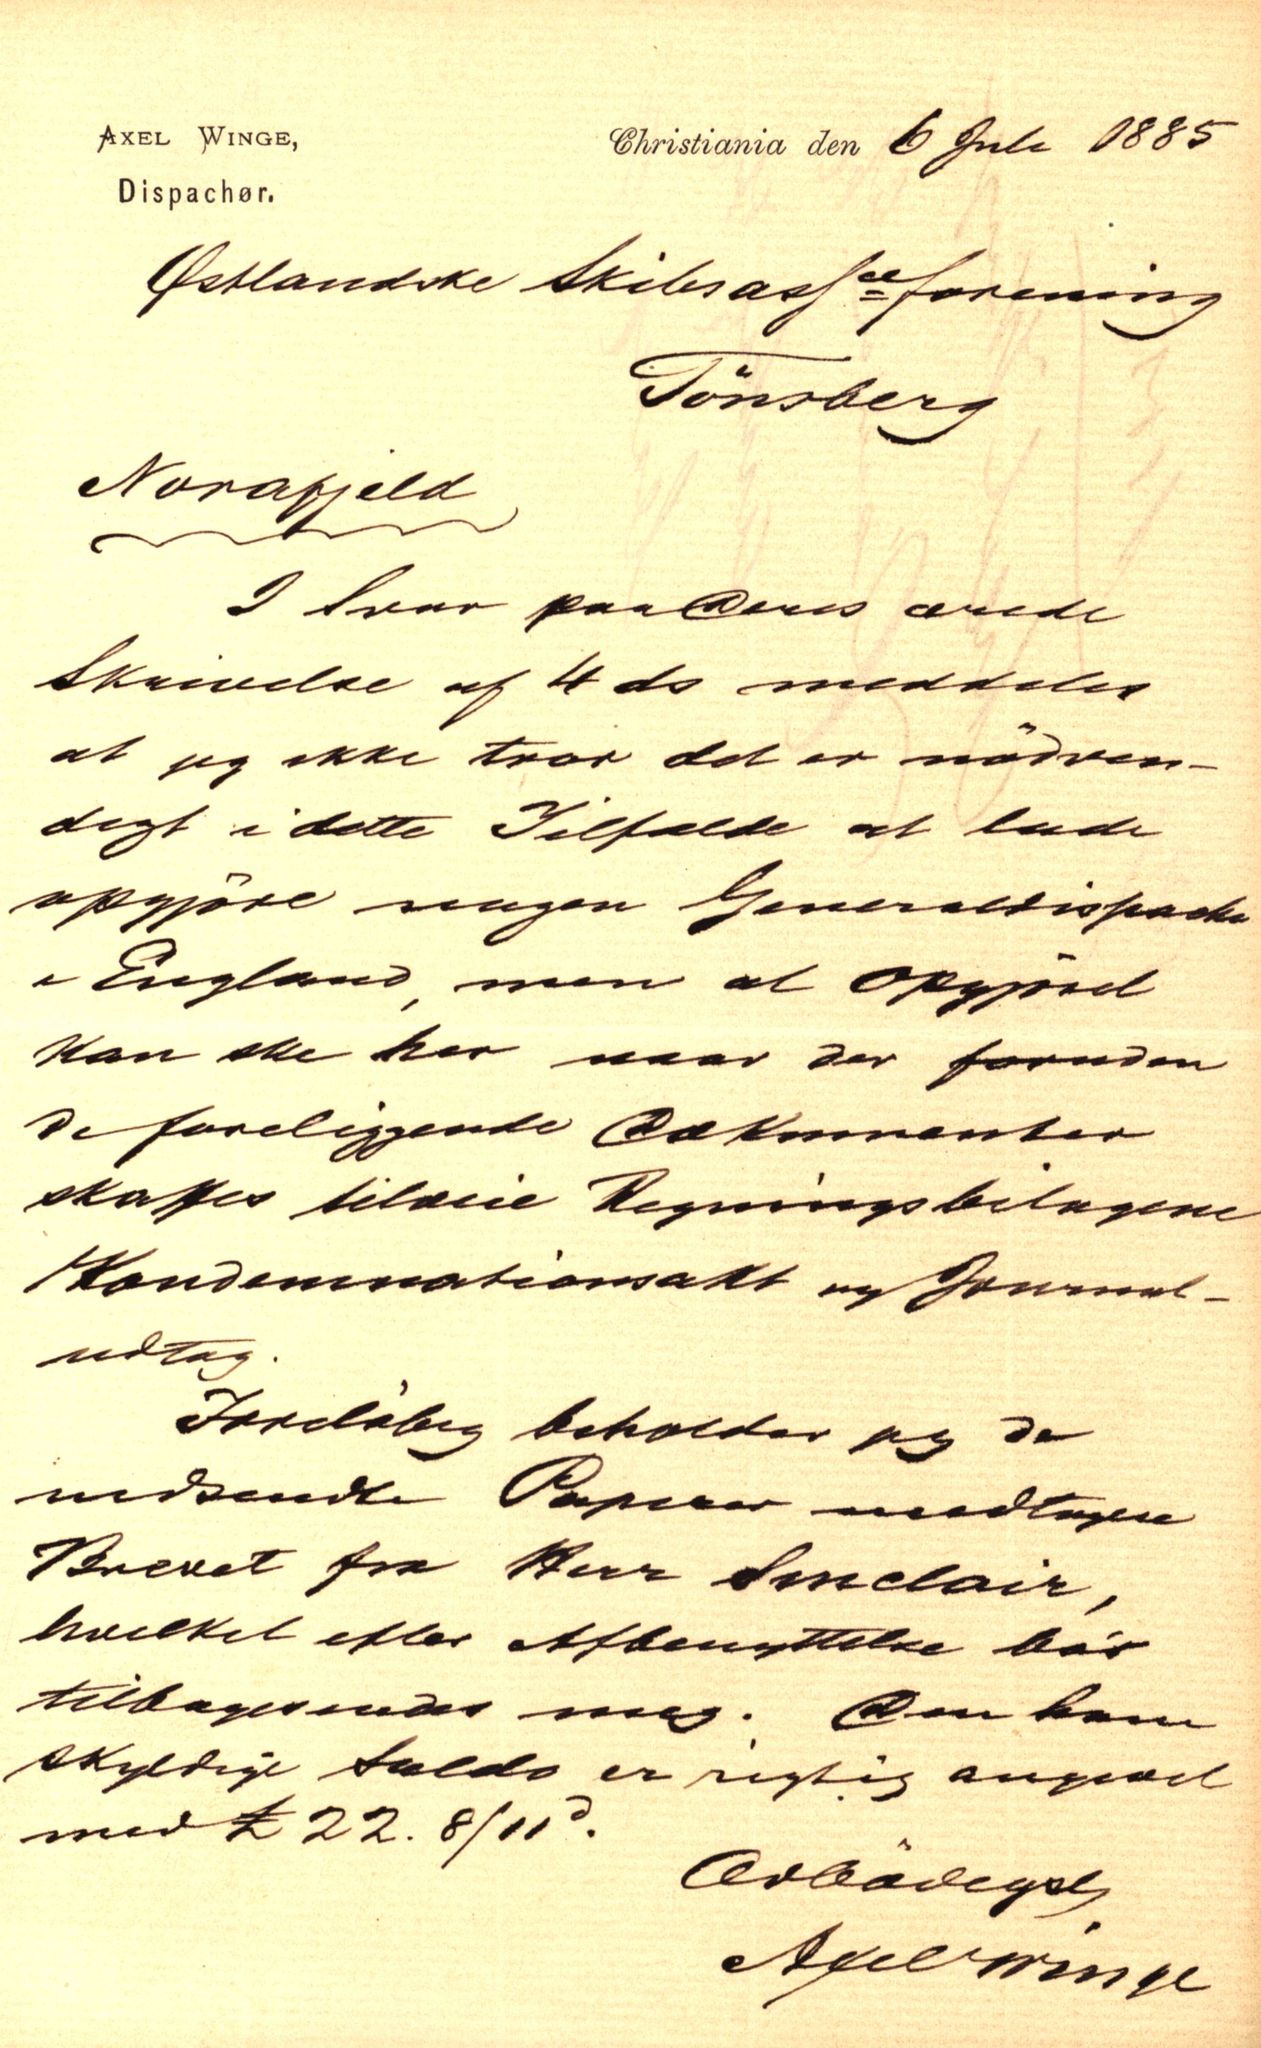 AXEL WINGE,
Dispachør.
Christiania den 6 Juli 1885
Østlandske Skibsassce forening
Tönsberg
Norafjeld
I Svar paa Deres ærede
Skrivelse af 4 ds meddeles
at jeg ikke tror det er nödven-
digt i dette Tilfælde at lade
opgjöre nogen Generaldispache
i England, men at Opgjöret
kan ske her naar der foruden
de foreliggende Dokumenter
skaffes tilveie Regningsbilagene
Kondemnationsakt og Journal-
udtag.
Foreløbig beholder jeg de
nedsendte Papirer undtagen
Brevet fra Herr Sinclair,
hvilket efter Afbenyttelse bör
tilbagesendes mig. Den ham
skyldige Saldo er rigtig angivet
med £ 22. 8/11d.
Ærbödigst
Axel Winge